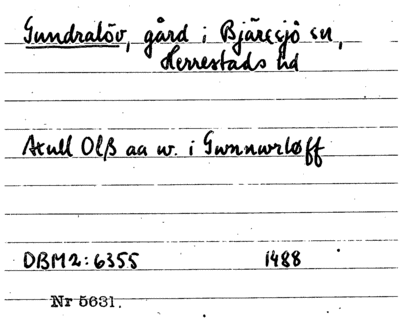 Gundralöv, gård i Bjäresjö sn,
Herrestads hd
Axull Olß aa w. i Gwnnwrløff
DBM2:6355 1488
Nr 5631.